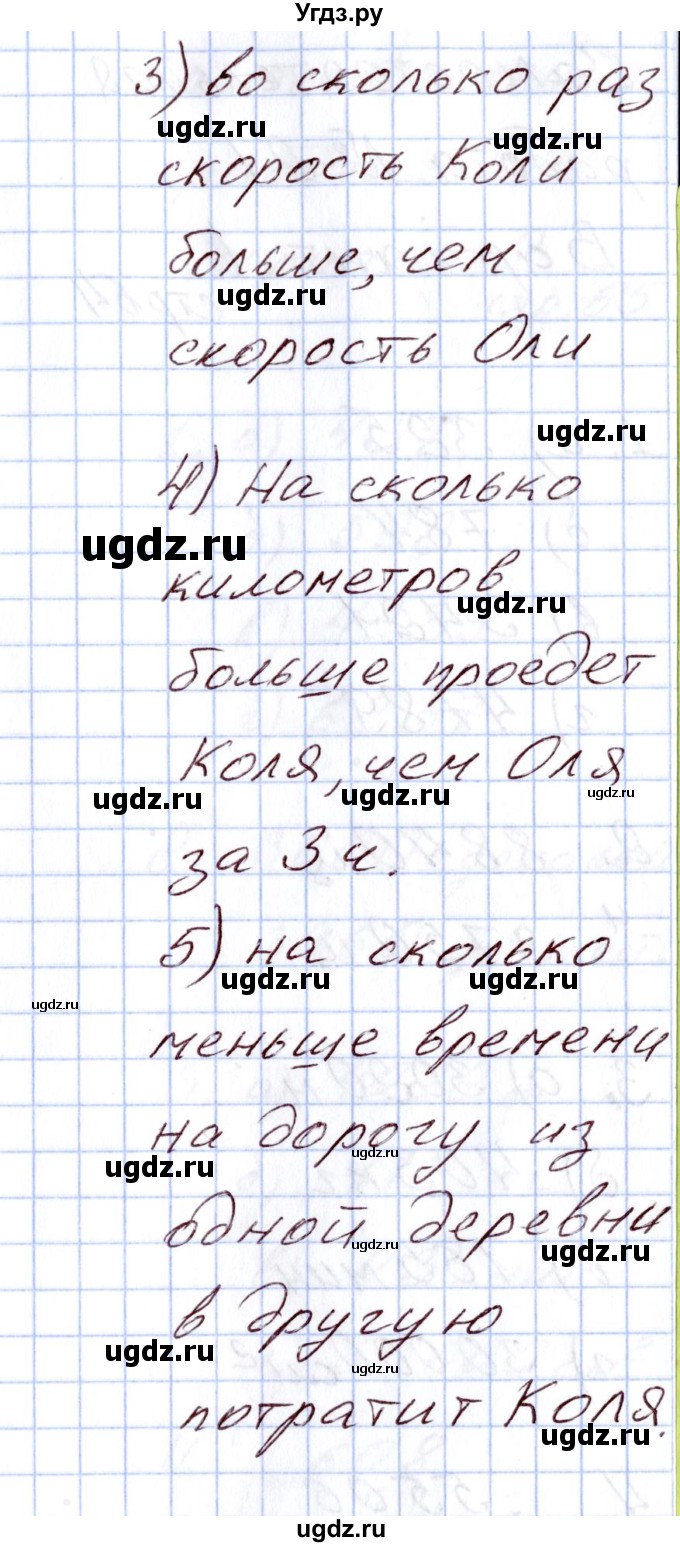 Угдз.ру
3) во сколько раз
ugdz.ru ugdz.ru
скорость Коли
больше, чем
ugdz.ru
скорость Оли
ugdz.ru
4) На сколько
ugdz.ru
километров
ugdz.ru
больше проедет
Коля, чем Оля
ugdz.ru ugdz.ru ugdz.ru
за 3 ч.
5) на сколько
ugdz.ru ugdz.ru
ugdz.ru
меньше времени
на дорогу из
ugdz.ru ugdz.ru
одной деревни
ugdz.ru ugdz.ru
в другую
ugdz.ru ugdz.ru
потратит Коля.
ugdz.ru
ugdz.ru